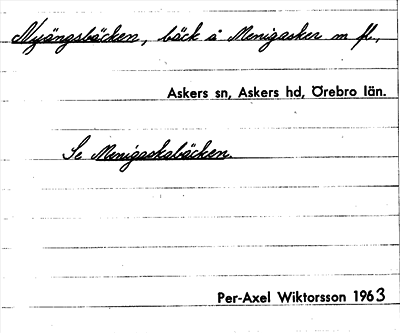 Nyängsbäcken, bäck å Menigasker m fl,
Askers sn, Askers hd, Örebro län.
Se Menigaskabäcken.
Per-Axel Wiktorsson 1963